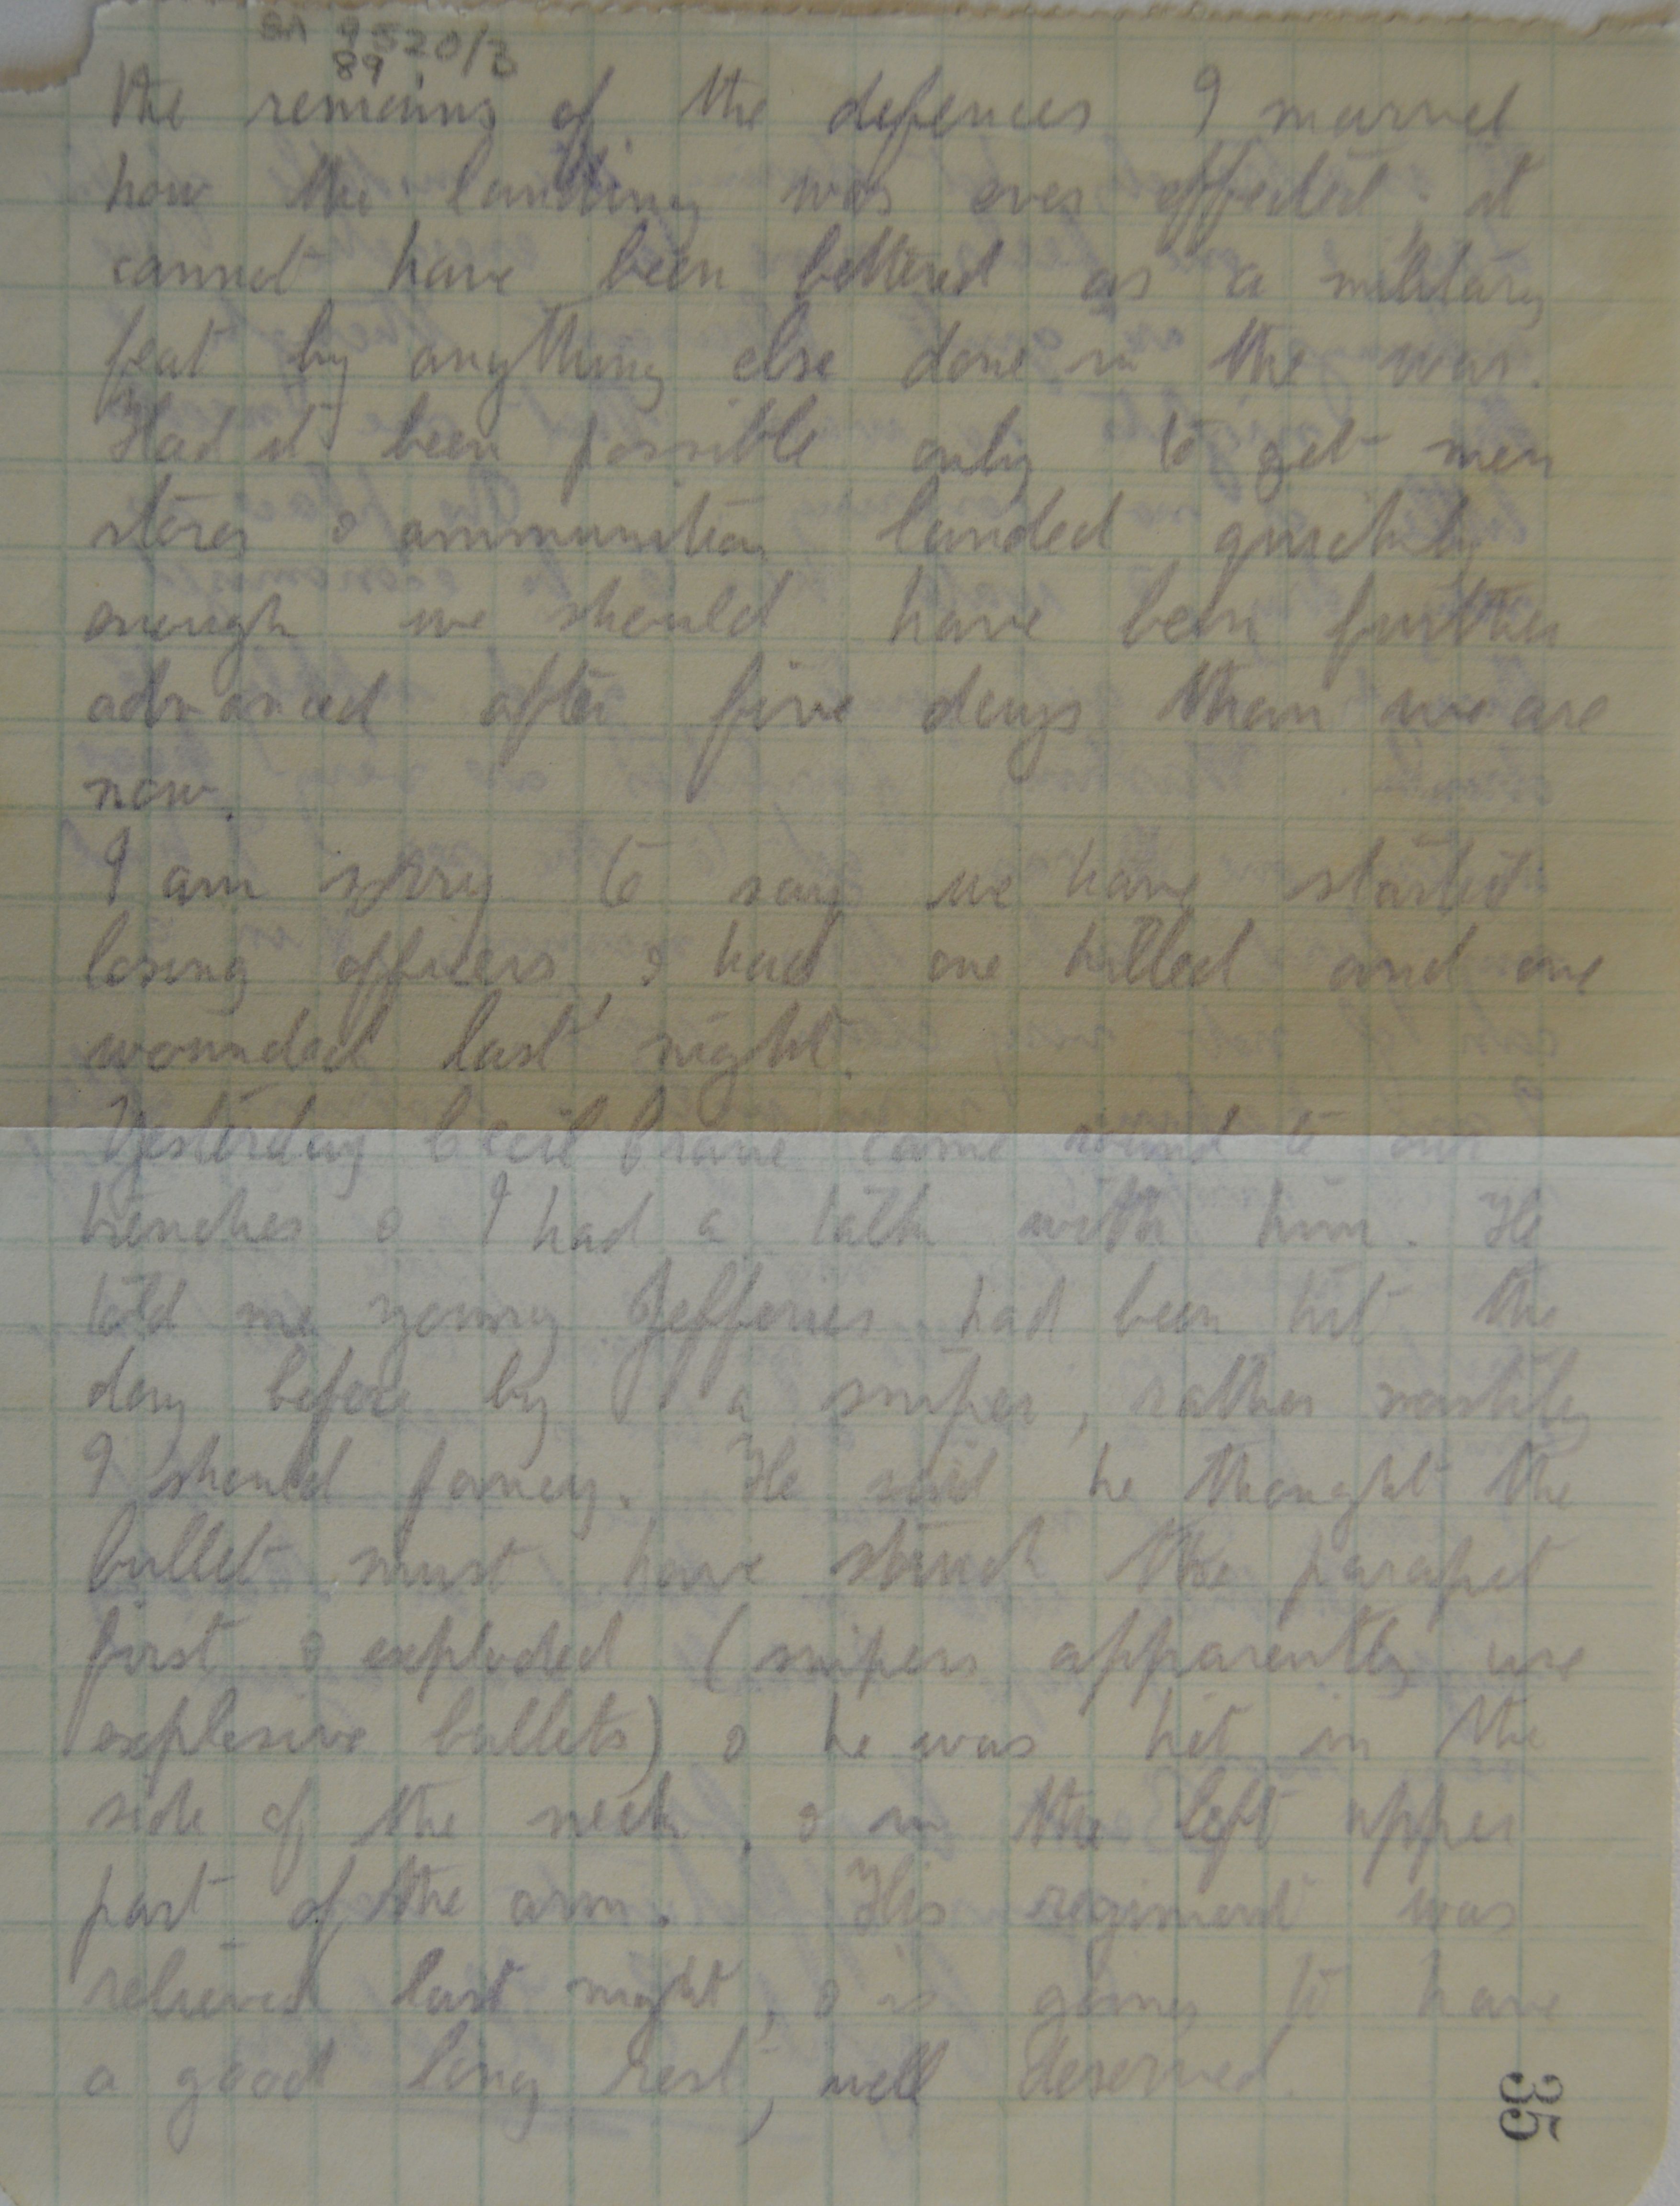 9520/3
89
the remains of the defences I marvel
how the landing was ever effected; it
cannot have been bettered as a military
feat by anything else done in the war.
Had it been possible only to get men
stores & ammunition landed quickly
enough we should have been further
advanced after five days than we are
now.
I am sorry to say we have started
losing officers, & had one killed and one
wounded last night.
Yesterday Cecil came round to our
trenches & I had a talk with him. He
told me young Jefferies had been hit the
day before by a sniper, rather nastily
I should fancy. He said he thought the
bullet must have struck the parapet
first & exploded (snipers apparently use
explosive bullets) & he was hit in the
side of the neck, & in the left upper
part of the arm. His regiment was
relieved last night, & is going to have
a good long rest, well deserved.
35